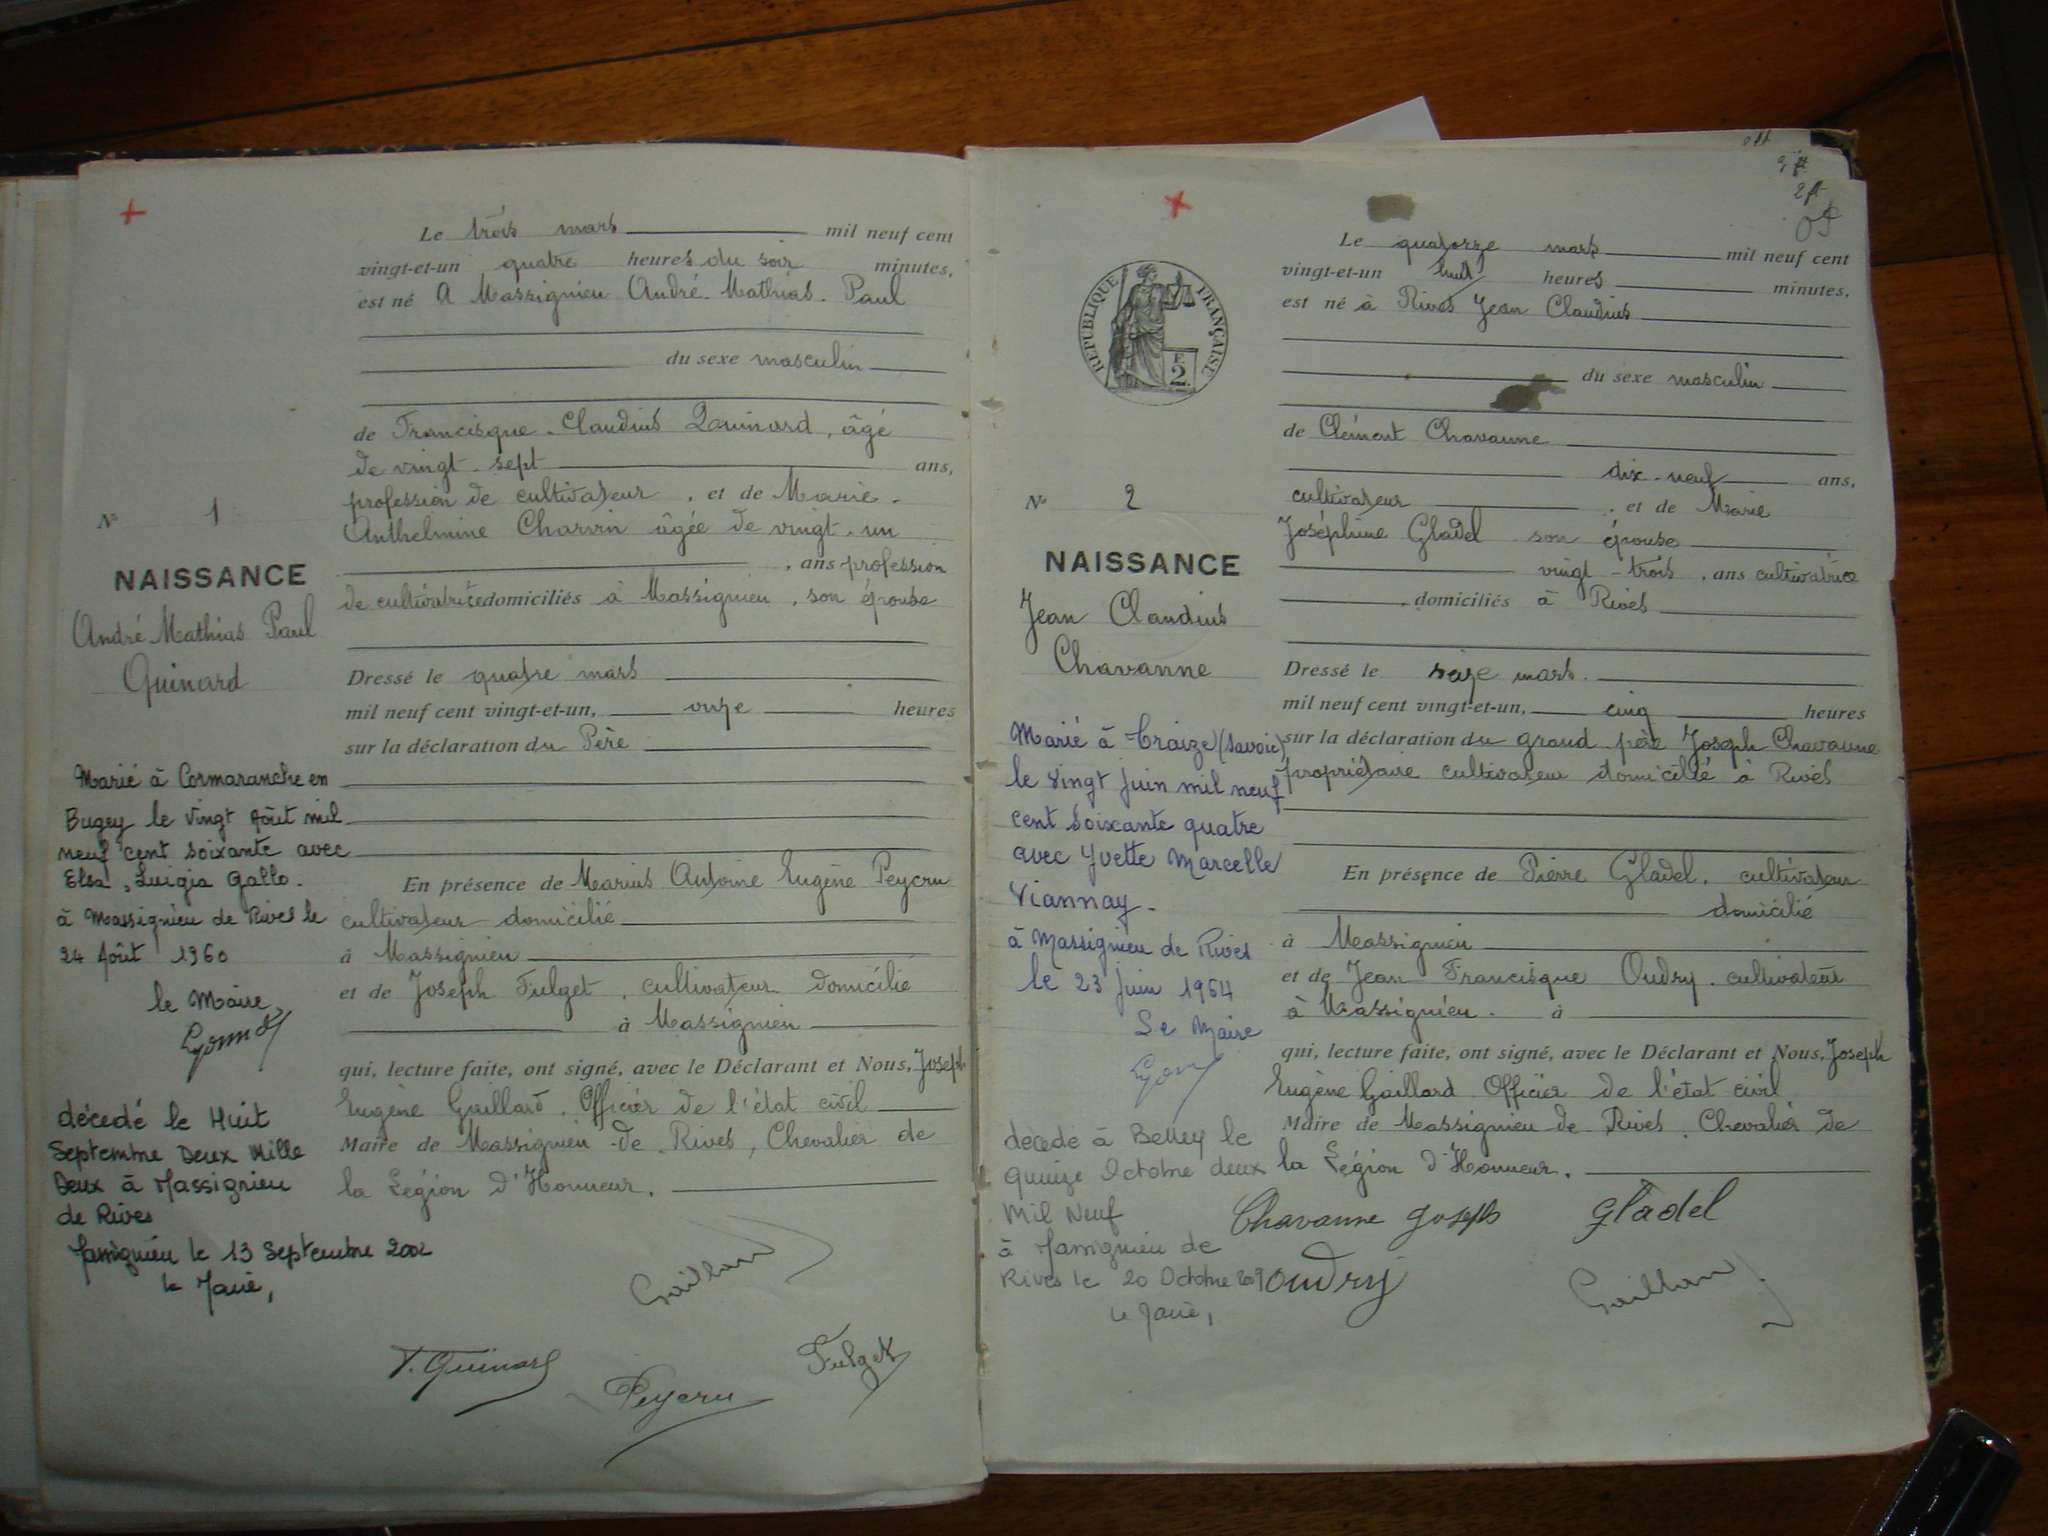 Le trois mars mil neuf cent
vingt-et-un quatre heures du soir minutes,
est né A Massignieu André-Mathias-Paul
du sexe masculin
de Francisque-Claudius Quinard, âgé
de vingt-sept ans,
profession de cultivateur, et de Marie-
Anthelmine Charvin âgée de vingt-un
, ans profession
de cultivatrice domiciliés à Massignieu, son épouse
N° 1
NAISSANCE
André Mathias Paul
Quinard
Dressé le quatre mars
mil neuf cent vingt-et-un, onze heures
sur la déclaration du Père
Marié à Cormaranche en
Bugey le vingt Août mil
neuf cent soixante avec
Elsa, Luigia Gallo.
à Massignieu de Rives le
24 Août 1960
le Maire
En présence de Marius Antoine Eugène Peycru
cultivateur domicilié
à Massignieu
et de Joseph Fulget, cultivateur domicilié
à Massignieu
qui, lecture faite, ont signé, avec le Déclarant et Nous, Joseph
Eugène Gaillard, Officier de l'état civil
Maire de Massignieu-de-Rives, Chevalier de
la Légion d'Honneur.
décedé le Huit
Septembre Deux Mille
Deux à Massignieu
de Rives
Massignieu le 13 Septembre 2002
le Maire,
Gaillard
F. Quinard
Peycru
Fulget
Le quatorze mars mil neuf cent
vingt-et-un huit heures minutes,
est né à Rives Jean Claudius
REPUBLIQUE FRANÇAISE
F.
2
du sexe masculin
de Clément Chavanne
dix-neuf ans,
cultivateur, et de Marie
Joséphine Gladel son épouse
vingt-trois, ans cultivatrice
, domiciliés à Rives
N° 2
NAISSANCE
Jean Claudius
Chavanne
Dressé le seize mars.
mil neuf cent vingt-et-un, cinq heures
sur la déclaration du grand-père Joseph Chavanne
propriétaire cultivateur domicilié à Rives
Marié à Traize (Savoie)
le vingt juin mil neuf
cent soixante quatre
avec Yvette Marcelle
Viannay-
à Massignieu de Rives
le 23 juin 1964
Le Maire
En présence de Pierre Gladel, cultivateur
domicilié
à Massignieu
et de Jean Francisque Oudry, cultivateur
à Massignieu. à
qui, lecture faite, ont signé, avec le Déclarant et Nous, Joseph
Eugène Gaillard Officier de l'état civil
Maire de Massignieu-de-Rives, Chevalier de
la Légion d'Honneur.
décédé à Belley le
quinze Octobre deux
Mil Neuf
à Massignieu de
Rives le 20 Octobre 2009
le Maire,
Chavanne Joseph
Gladel
Oudry
Gaillard